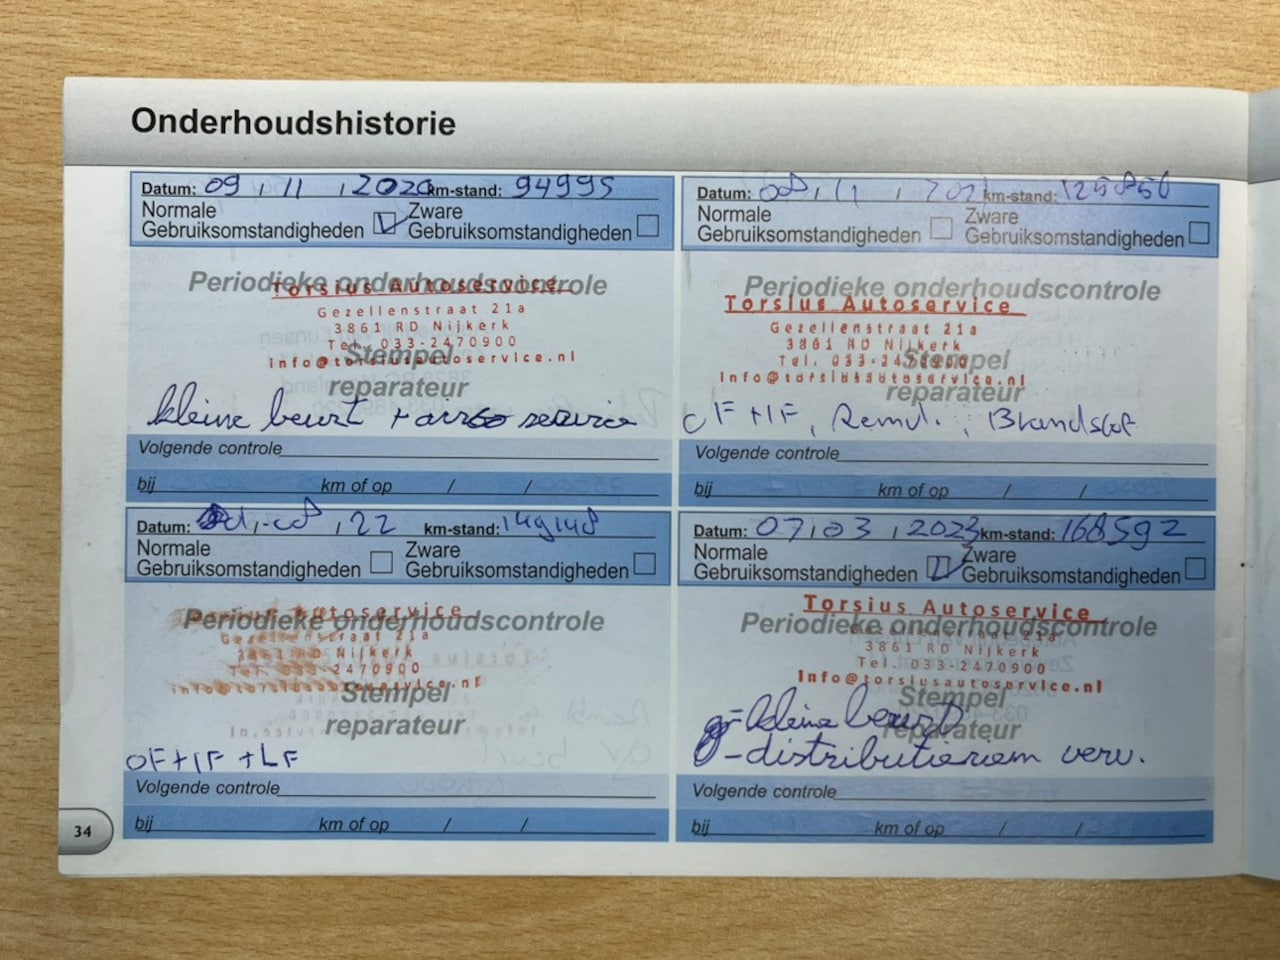 Onderhoudshistorie
Datum: 09 / 11 / 2020 km-stand: 94995
Normale Gebruiksomstandigheden Zware Gebruiksomstandigheden
Periodieke onderhoudscontrole
Torsius Autoservice
Gezellenstraat 21a
3861 RD Nijkerk
Tel. 033-2470900
Info@torsiusautoservice.nl
Stempel
reparateur
kleine beurt + airco service
Volgende controle
bij km of op / /
Datum: 08 / 11 / 2021 km-stand: 125856
Normale Gebruiksomstandigheden Zware Gebruiksomstandigheden
Periodieke onderhoudscontrole
Torsius Autoservice
Gezellenstraat 21a
3861 RD Nijkerk
Tel. 033-2470900
Info@torsiusautoservice.nl
Stempel
reparateur
OF+IF, Remvl. , Brandstof
Volgende controle
bij km of op / /
Datum: / -08 / 22 km-stand: 149148
Normale Gebruiksomstandigheden Zware Gebruiksomstandigheden
Periodieke onderhoudscontrole
Torsius Autoservice
Gezellenstraat 21a
3861 RD Nijkerk
Tel. 033-2470900
Info@torsiusautoservice.nl
Stempel
reparateur
OF+IF+LF
Volgende controle
bij km of op / /
Datum: 07 / 03 / 2023 km-stand: 168592
Normale Gebruiksomstandigheden Zware Gebruiksomstandigheden
Periodieke onderhoudscontrole
Torsius Autoservice
Gezellenstraat 21a
3861 RD Nijkerk
Tel. 033-2470900
Info@torsiusautoservice.nl
Stempel
reparateur
-kleine beurt
-distributieriem verv.
Volgende controle
bij km of op / /
34